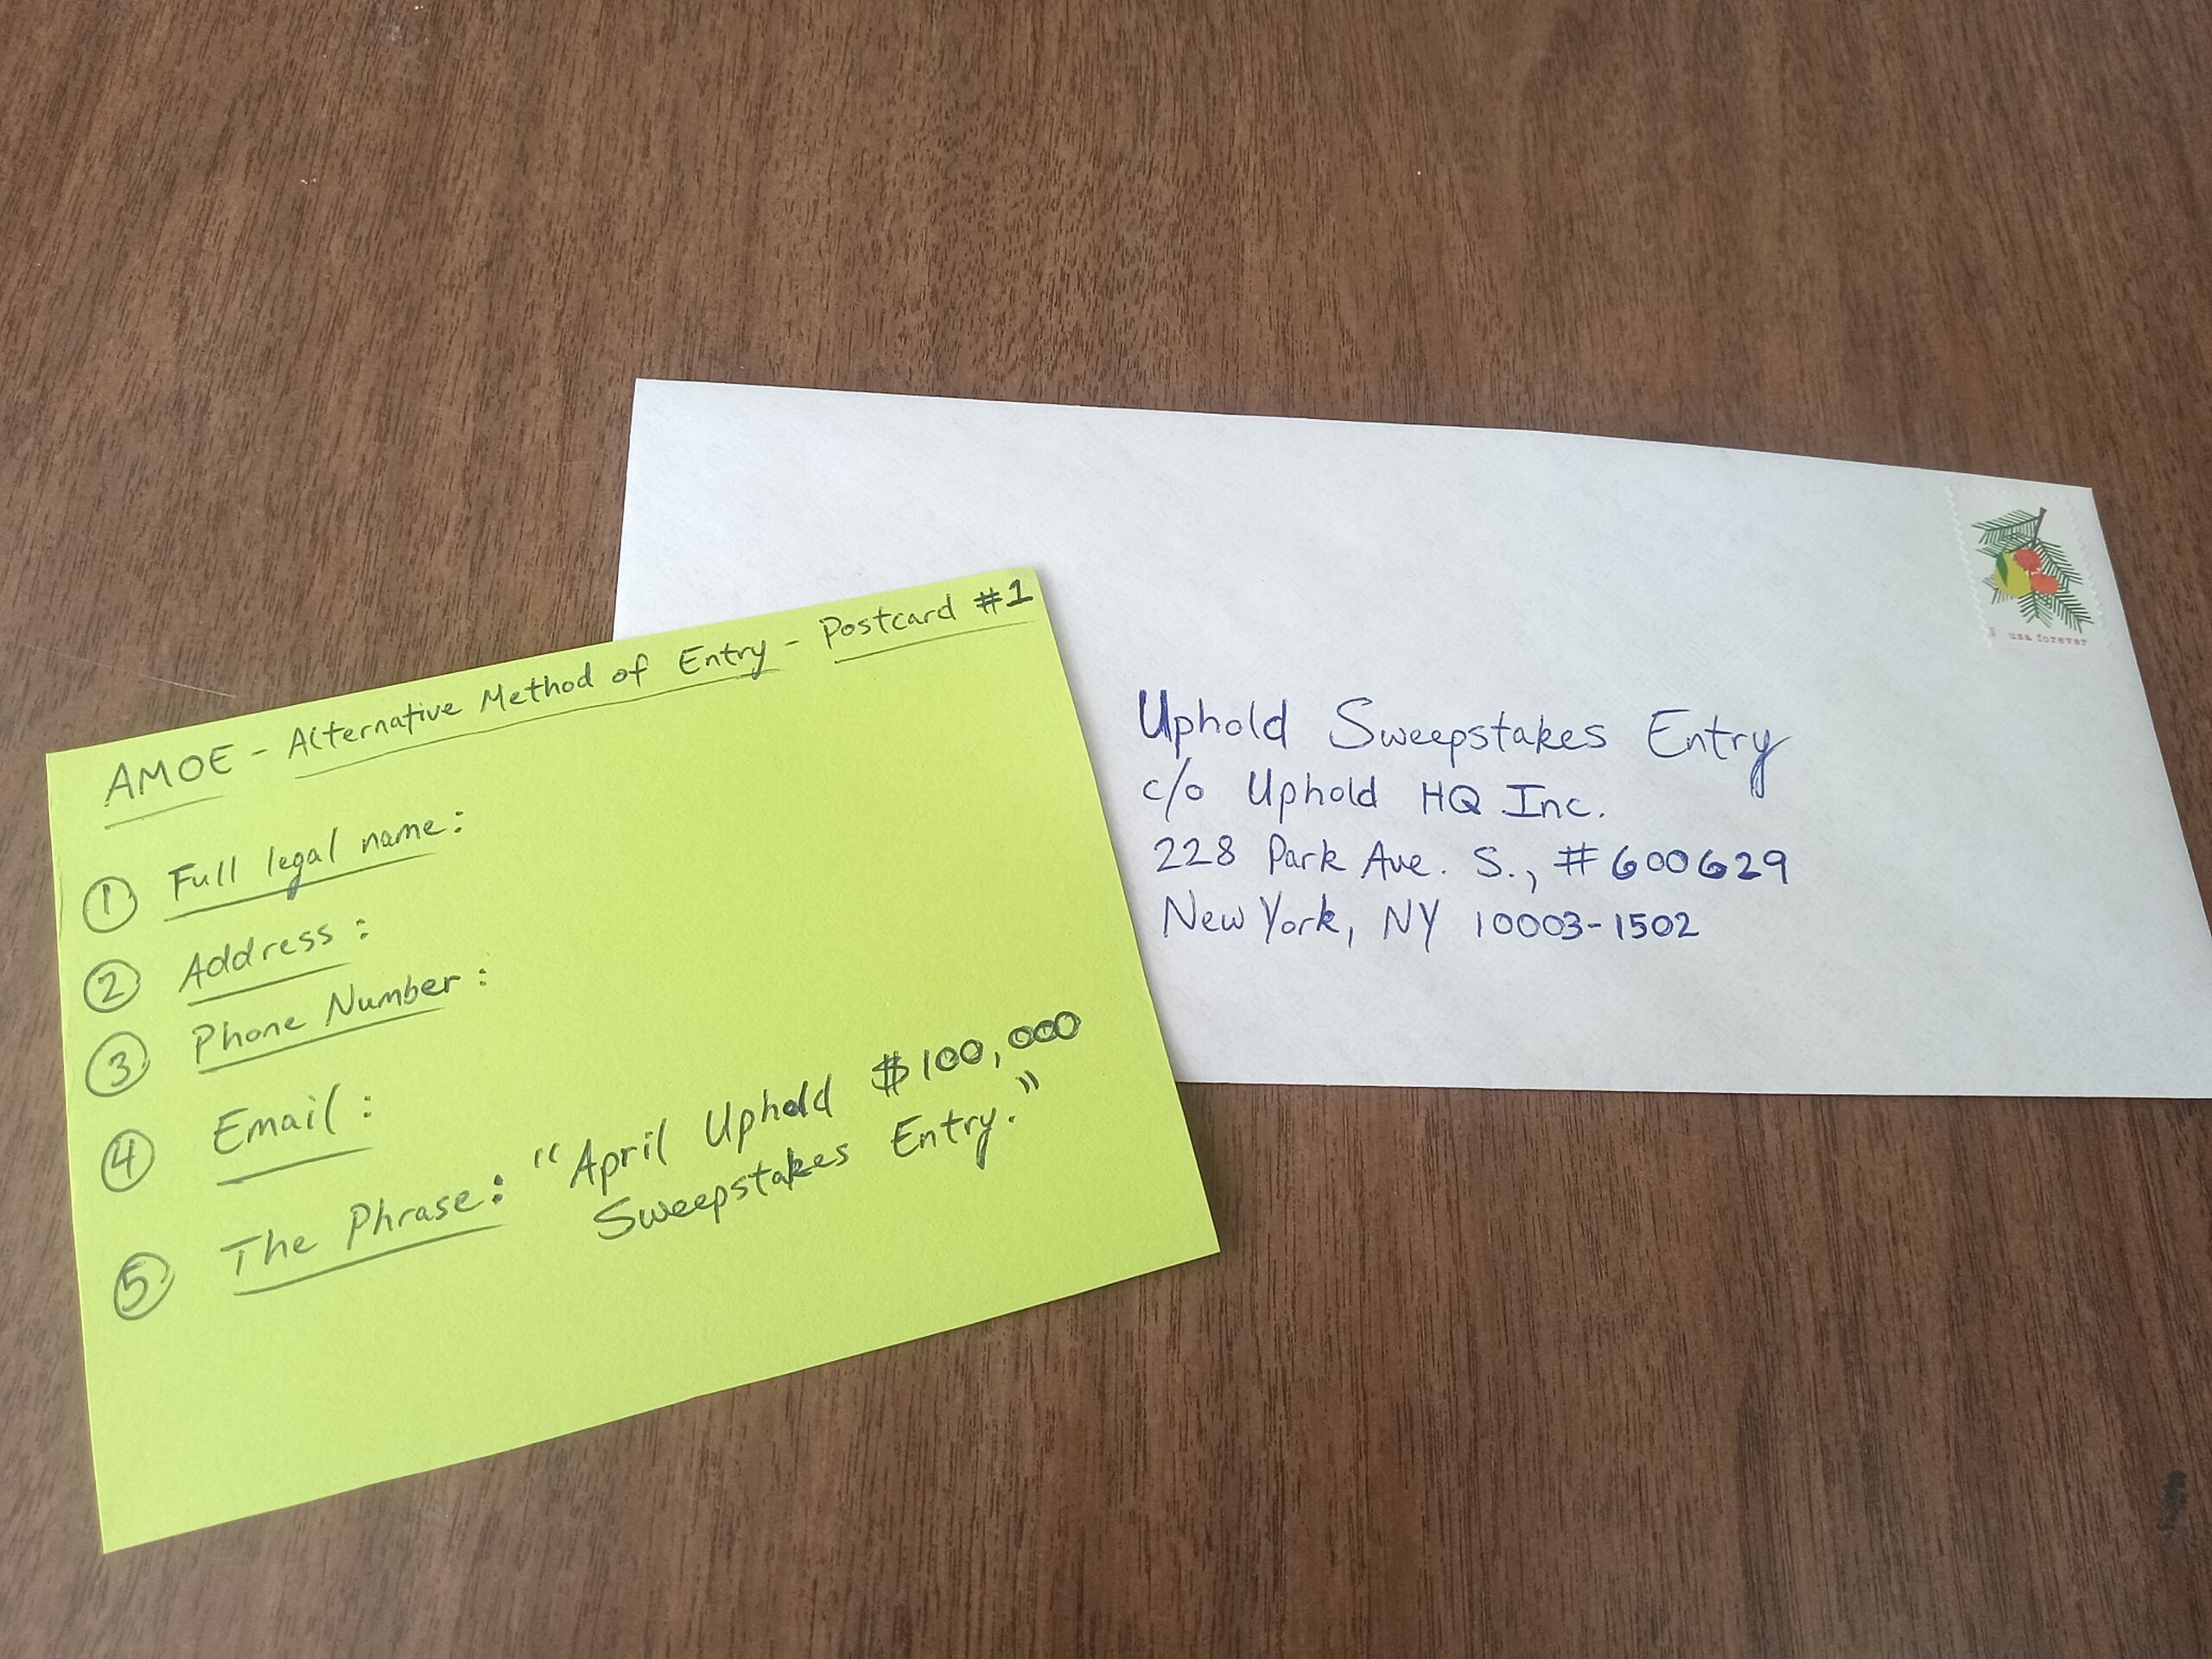 AMOE - Alternative Method of Entry - Postcard #1
① Full legal name:
② Address:
③ Phone Number:
④ Email:
⑤ The Phrase: "April Uphold $100,000
Sweepstakes Entry."
usa forever
Uphold Sweepstakes Entry
c/o Uphold HQ Inc.
228 Park Ave. S., #600629
New York, NY 10003-1502